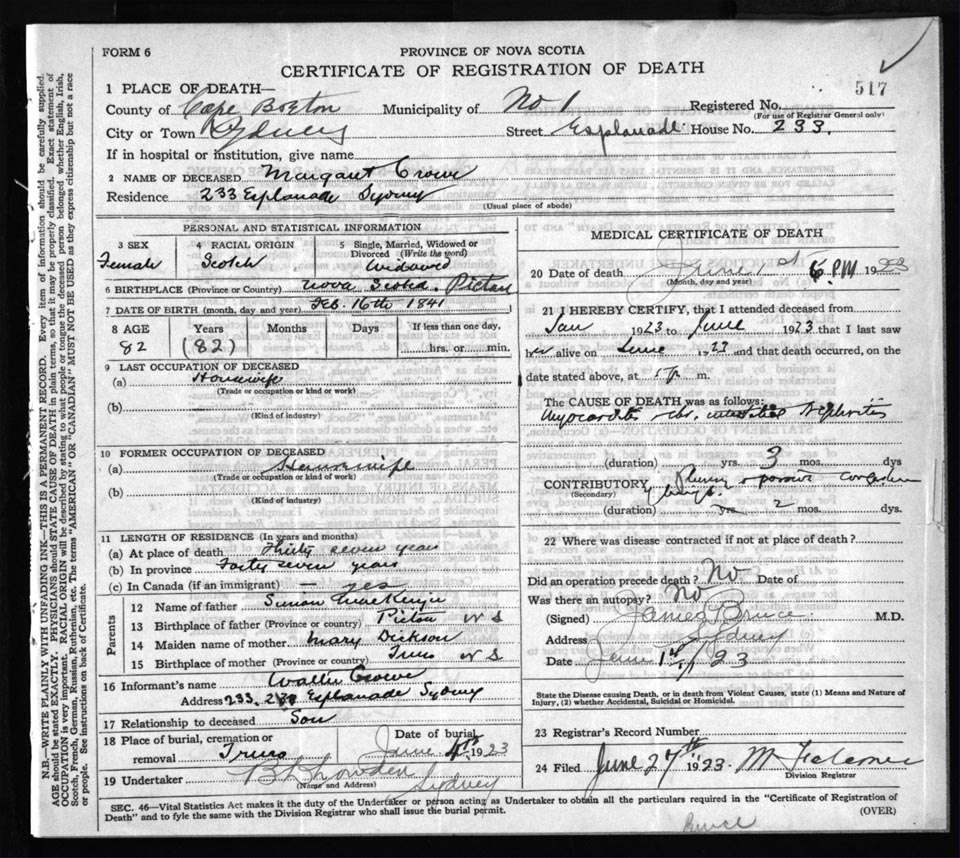 FORM 6
PROVINCE OF NOVA SCOTIA
CERTIFICATE OF REGISTRATION OF DEATH
517
1 PLACE OF DEATH—
County of Cape Breton Municipality of No 1 Registered No.
(For use of Registrar General only)
City or Town Sydney Street Esplanade House No. 233.
If in hospital or institution, give name
2 NAME OF DECEASED Margaret Crowe
Residence 233 Esplanade Sydney
(Usual place of abode)
PERSONAL AND STATISTICAL INFORMATION
3 SEX 4 RACIAL ORIGIN 5 Single, Married, Widowed or
Divorced (Write the word)
Female Scotch Widowed
6 BIRTHPLACE (Province or Country) Nova Scotia. Pictou
7 DATE OF BIRTH (month, day and year) Feb. 16th 1841
8 AGE Years Months Days If less than one day,
82 (82) hrs. or min.
9 LAST OCCUPATION OF DECEASED
(a) Housewife
(Trade or occupation or kind or work)
(b)
(Kind of industry)
10 FORMER OCCUPATION OF DECEASED
(a) Housewife
(Trade or occupation or kind of work)
(b)
(Kind of industry)
11 LENGTH OF RESIDENCE (In years and months)
(a) At place of death Thirty seven years
(b) In province Forty seven years
(c) In Canada (if an immigrant) — yes
Parents
12 Name of father Simon MacKenzie
13 Birthplace of father (Province or country) Pictou N S
14 Maiden name of mother Mary Dickson
15 Birthplace of mother (Province or country) Truro N S
16 Informant's name Walter Crowe
Address 233, Esplanade Sydney
17 Relationship to deceased Son
18 Place of burial, cremation or Date of burial
removal Truro June 4th 1923
19 Undertaker Sydney
(Name and Address)
MEDICAL CERTIFICATE OF DEATH
20 Date of death June 1st 6 P.M. 1923
(Month, day and year)
21 I HEREBY CERTIFY, that I attended deceased from
Jan 1923 to June 1923 that I last saw
her alive on June 1923 and that death occurred, on the
date stated above, at m.
The CAUSE OF DEATH was as follows:
Myocarditis chr. Nephritis
(duration) yrs. 3 mos. dys
CONTRIBUTORY
(Secondary)
(duration) yrs. 2 mos. dys.
22 Where was disease contracted if not at place of death?
Did an operation precede death? No Date of
Was there an autopsy? No
(Signed) James Bruce M.D.
Address Sydney
Date June 1st 23
State the Disease causing Death, or in death from Violent Causes, state (1) Means and Nature of
Injury, (2) whether Accidental, Suicidal or Homicidal.
23 Registrar's Record Number
24 Filed June 27th 1923.
Division Registrar
SEC. 46—Vital Statistics Act makes it the duty of the Undertaker or person acting as Undertaker to obtain all the particulars required in the "Certificate of Registration of
Death" and to fyle the same with the Division Registrar who shall issue the burial permit.
(OVER)
Bruce
N.B.—WRITE PLAINLY, WITH UNFADING INK—THIS IS A PERMANENT RECORD. Every item of information should be carefully supplied.
AGE should be stated EXACTLY. PHYSICIANS should STATE CAUSE OF DEATH in plain terms, so that it may be properly classified. Exact statement of
OCCUPATION is very important. RACIAL ORIGIN will be described by stating to what people or tongue the deceased person belonged whether English, Irish,
Scotch, French, German, Russian, Ruthenian, etc. The terms "AMERICAN" OR "CANADIAN" MUST NOT BE USED as they express citizenship but not a race
or people. See instructions on back of Certificate.